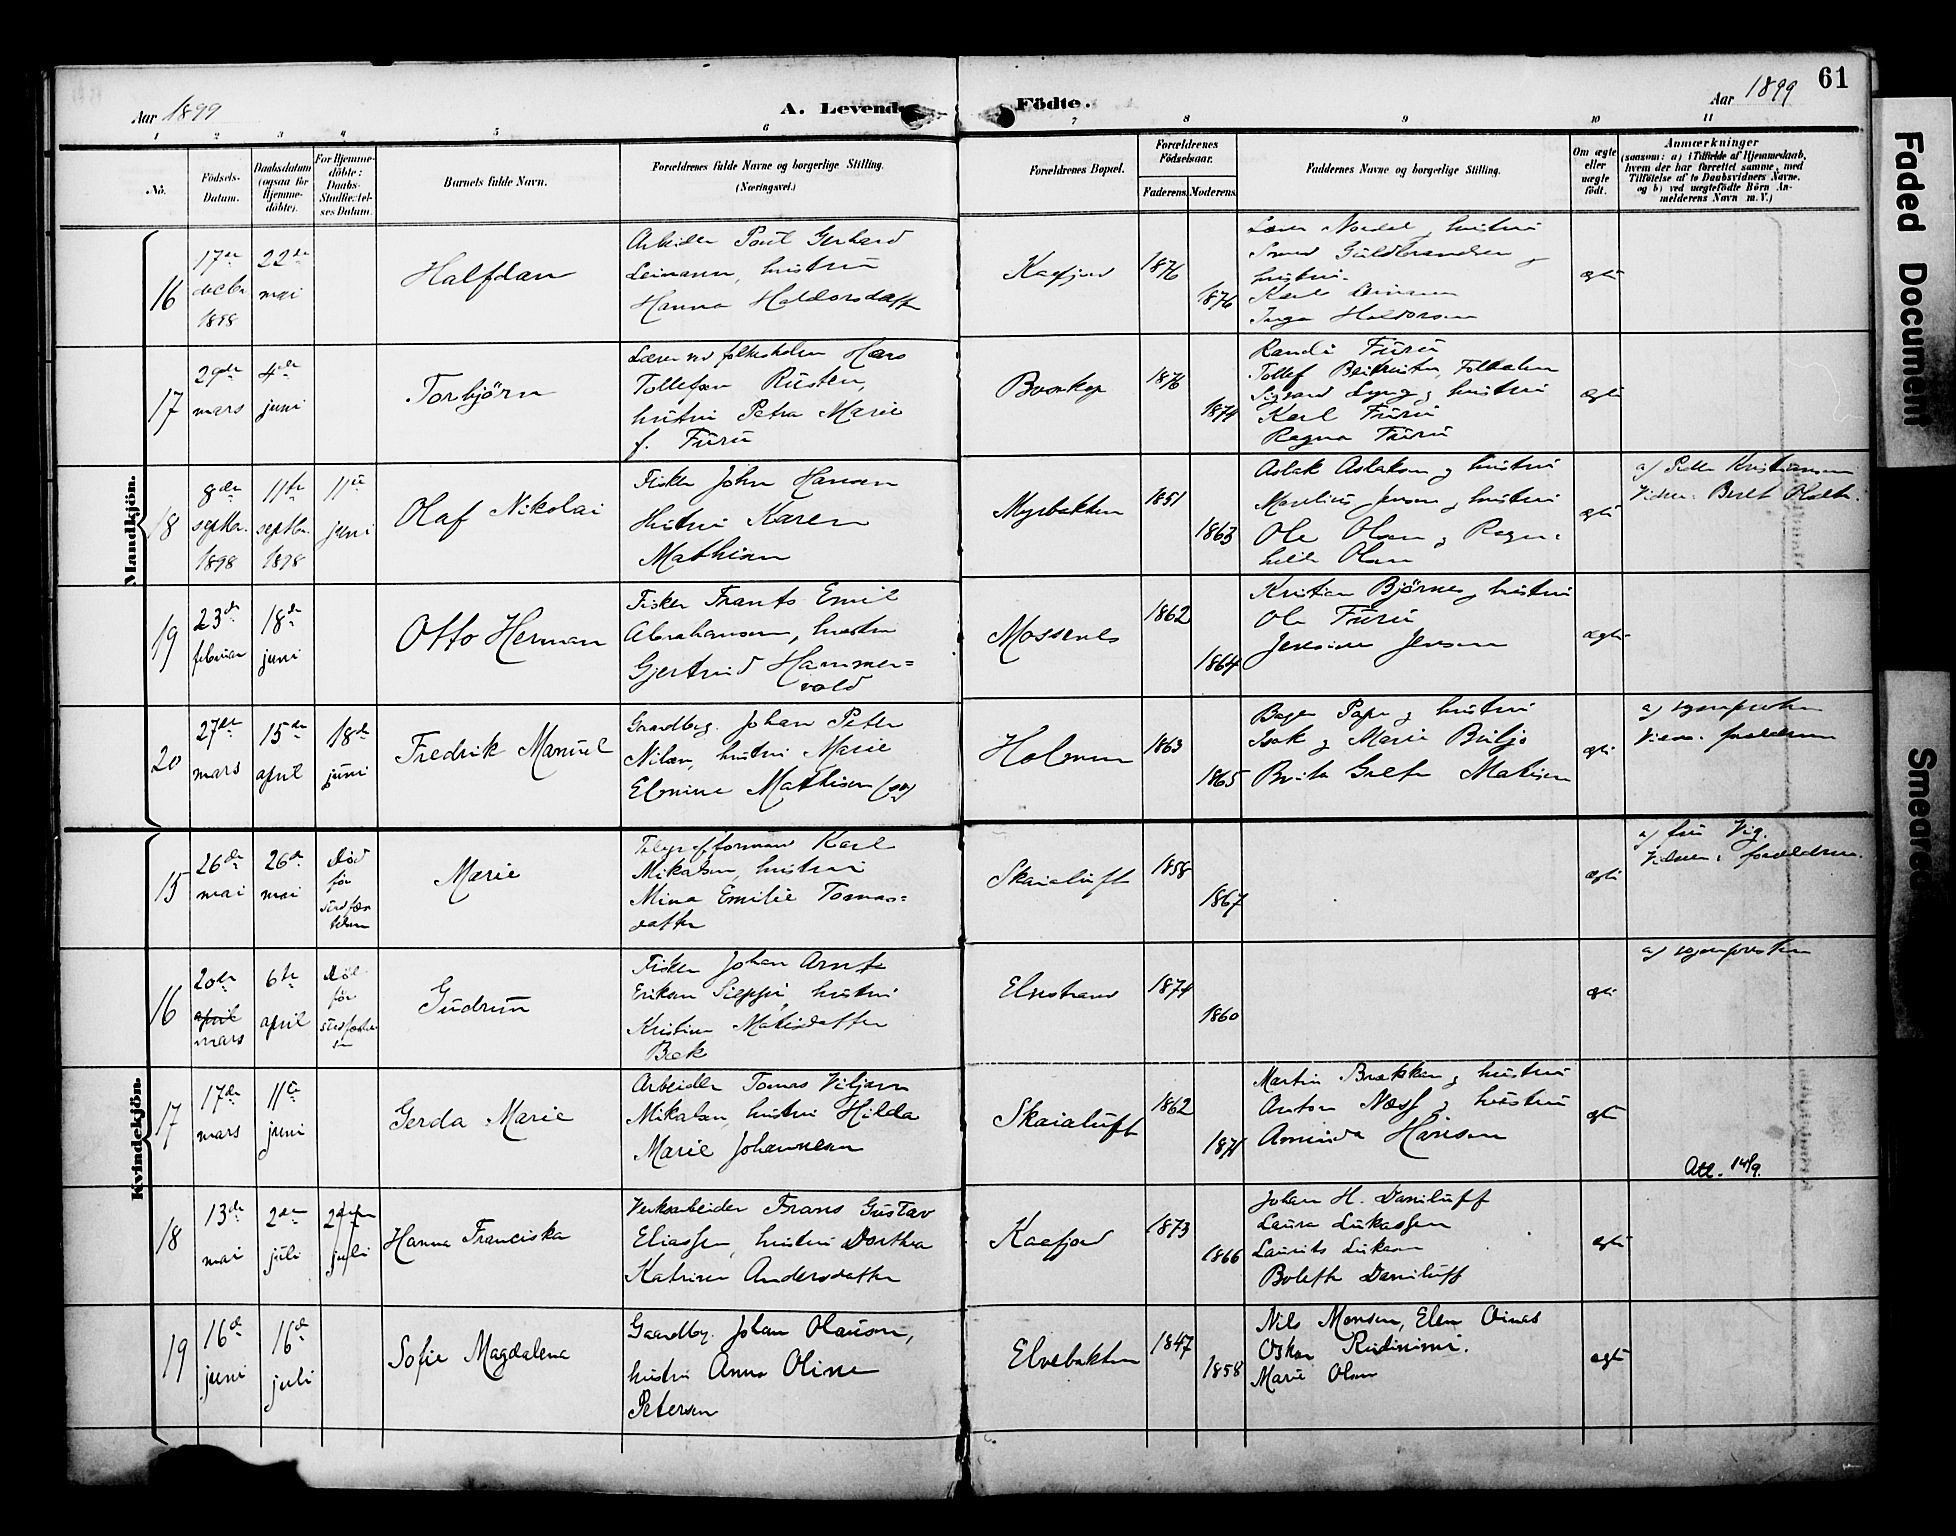 Aar 1899
A. Levende
Födte.
Aar 1899
61
1 2 3 4 5 6 7 8 9 10 11
No.
Födsels-
Datum.
Daabsdatum
(ogsaa för
Hjemme-
döbte).
For Hjemme-
döbte:
Daabs-
Stadfæstel-
ses Datum.
Barnets fulde Navn.
Forældrenes fulde Navne og borgerlige Stilling.
(Næringsvei.)
Forældrenes Bopæl.
Forældrenes
Födselsaar.
Faderens.
Moderens.
Faddernes Navne og borgerlige Stilling.
Om ægte
eller
uægte
födt.
Anmærkninger
(saasom: a) i Tilfælde af Hjemmedaab,
hvem der har forrettet samme, med
Tilföielse af to Daabsvidners Navne,
og b) ved uægtefödte Börn An-
melderens Navn m. V.)
Mandkjön.
16
17de
decbr
1898
22de
mai
Halfdan
Arbeider Poul Gerhard
Leinann, hustru
Hanna Haldorsdatt
Kaafjord
1876
1876
Lærer Nordal og hustru
Smed Guldbrandsen og
hustru
Karl
Inga Haldorsen
ægte
17
29de
mars
4de
juni
Torbjörn
Lærer ved folkeskolen Hans
Tollefsen Rusten,
hustru Petra Marie
f. Furu
Bosekop
1876
1874
Randi Furu
Tollef
Sigvard Lyng og hustru
Karl Furu
Ragna Furu
ægte
18
8de
septbr.
1898
11te
septbr.
1898
11te
juni
Olaf Nikolai
Fisker John Hansen
Hustru Karen
Mathisen
Myrbakken
1851
1863
Aslak Aslaksen og hustru
Jensen og hustru
Ole Olsen og Ragn-
hild Olsen
ægte
a) Peder Kristiansen
Vidner: Berit Olsdtr.
19
23de
februar
18de
juni
Otto Herman
Fisker Frants Emil
Abrahamsen, hustru
Gjertrud Hammer=
vold
Mossenes
1862
1864
Kristian Björnes og hustru
Ole Furu
Jensine Jensen
ægte
20
27de
mars
15de
april
18de
juni
Fredrik Manuel
Gaardbrg. Johan Peter
Nilsen, hustru Marie
Elonine Mathisen
Holmen
1863
1865
Bager Pape og hustru
Isak og Marie Buljo
Berit Grete Mathisen
ægte
a) sogneprsten
Vidn. forældrene
Kvindekjön.
15
26de
mai
26de
mai
Död
för
stadfæs
telsen
Marie
Telegrafformand Karl
Mikalsen, hustru
Mina Emilie Tomas=
datter
Skaialuft
1858
1867
ægte
a) fru Vig.
Vidner: forældrene.
16
20de
april
mars
6te
april
Död
för
stadfæstel
sen
Gudrun
Fisker Johan Arnt
Eriksen Sieppi, hustru
Kristine Matisdatter
Bæk
Elvestrand
1874
1860
ægte
a) sognepresten
17
17de
mars
11te
juni
Gerda Marie
Arbeider Tomas Viljam
Mikalsen, hustru Hilda
Marie Johannesen
Skaialuft
1862
1871
Martin Brækken og hustru
Anton Næss og hustru
Hansen
ægte
Att. 14/9.
18
13de
mai
2den
juli
juli
Hanna Franciska
Verksarbeider Frans Gustav
Eliassen, hustru Dorthea
Katrine Andersdatter
Kaafjord
1873
1866
Johan H. Daniluff
Laura Lukassen
Laurits Lukasen
Bolette Daniluff
ægte
19
16de
juni
16de
juli
Sofie Magdalena
Gaardbrg. Johan Olausen,
hustru Anna Oline
Petersen
Elvebakken
1847
1858
Nils Monsen, Elen Oinas
Oskar Rudinimi.
Marie Olsen
ægte
Faded Document
Smeared